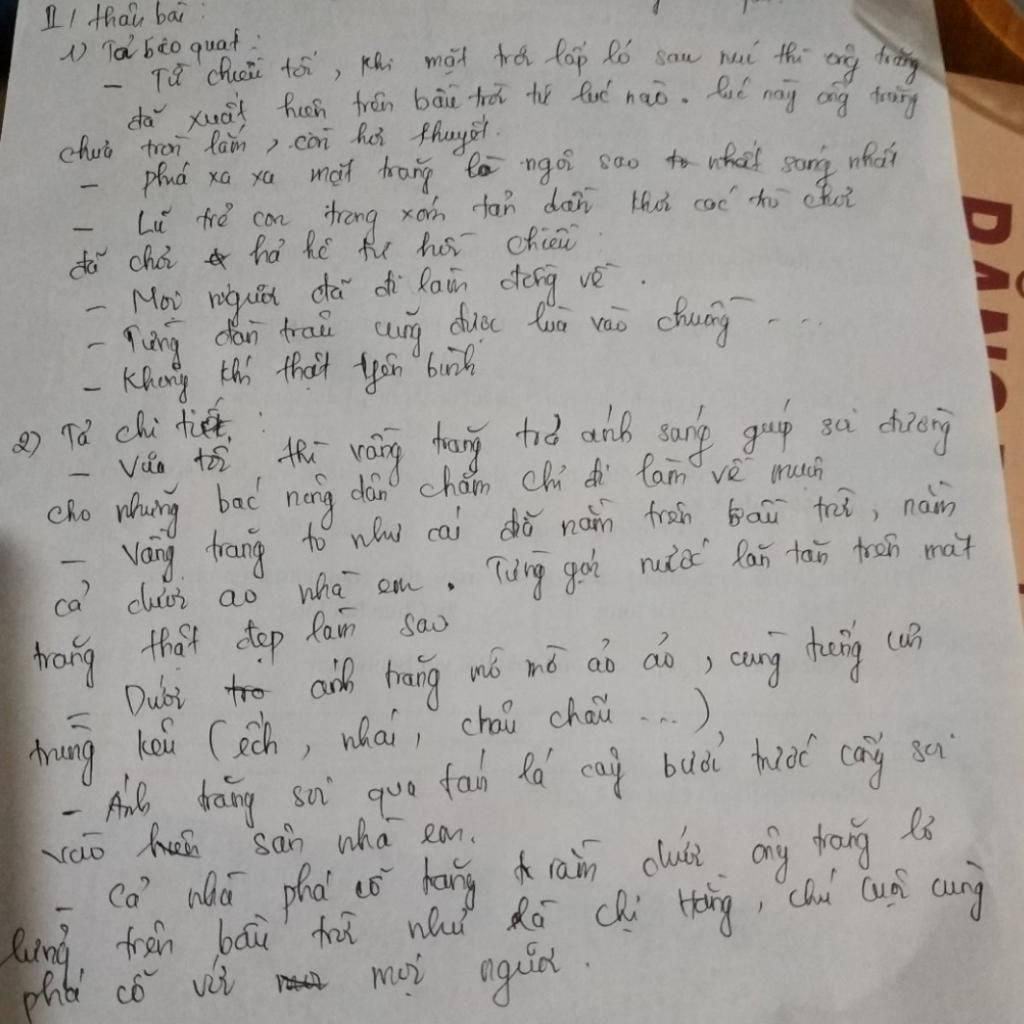 II / thân bài :
1) Tả bao quát :
- Từ chiều tối, khi mặt trời lấp ló sau núi thì ông trăng
đã xuất hiện trên bầu trời từ lúc nào. lúc này ông trăng
chưa tròn lắm, còn hơi khuyết.
- phía xa xa mặt trăng là ngôi sao nhất sáng nhất
- Lũ trẻ con trong xóm tản dần các trò chơi
đã chơi hả hê từ hồi chiều
- Mọi người đã đi làm đồng về.
- Từng đàn trâu cũng được lùa vào chuồng ....
- Không khí thật yên bình
2) Tả chi tiết :
- Vừa tối, thì vầng trăng trở ánh sáng giúp soi đường
cho những bác nông dân chăm chỉ đi làm về muộn
- Vầng trăng to như cái đĩa nằm trên bầu trời, nằm
cả dưới ao nhà em. Từng gợn nước lăn tăn trên mặt
trăng thật đẹp làm sao
- Dưới ánh trăng mờ mờ ảo ảo, cùng tiếng côn
trùng kêu (ếch, nhái, chẫu chẫu ...),
- Ánh trăng soi qua tán lá cây bưởi trước cổng soi
vào hiên sân nhà em.
- Cả nhà phá cỗ trăng rằm dưới ông trăng lơ
lửng trên bầu trời như là chị Hằng, chú cuội cùng
phá cỗ với mọi người.
ĐẲNG